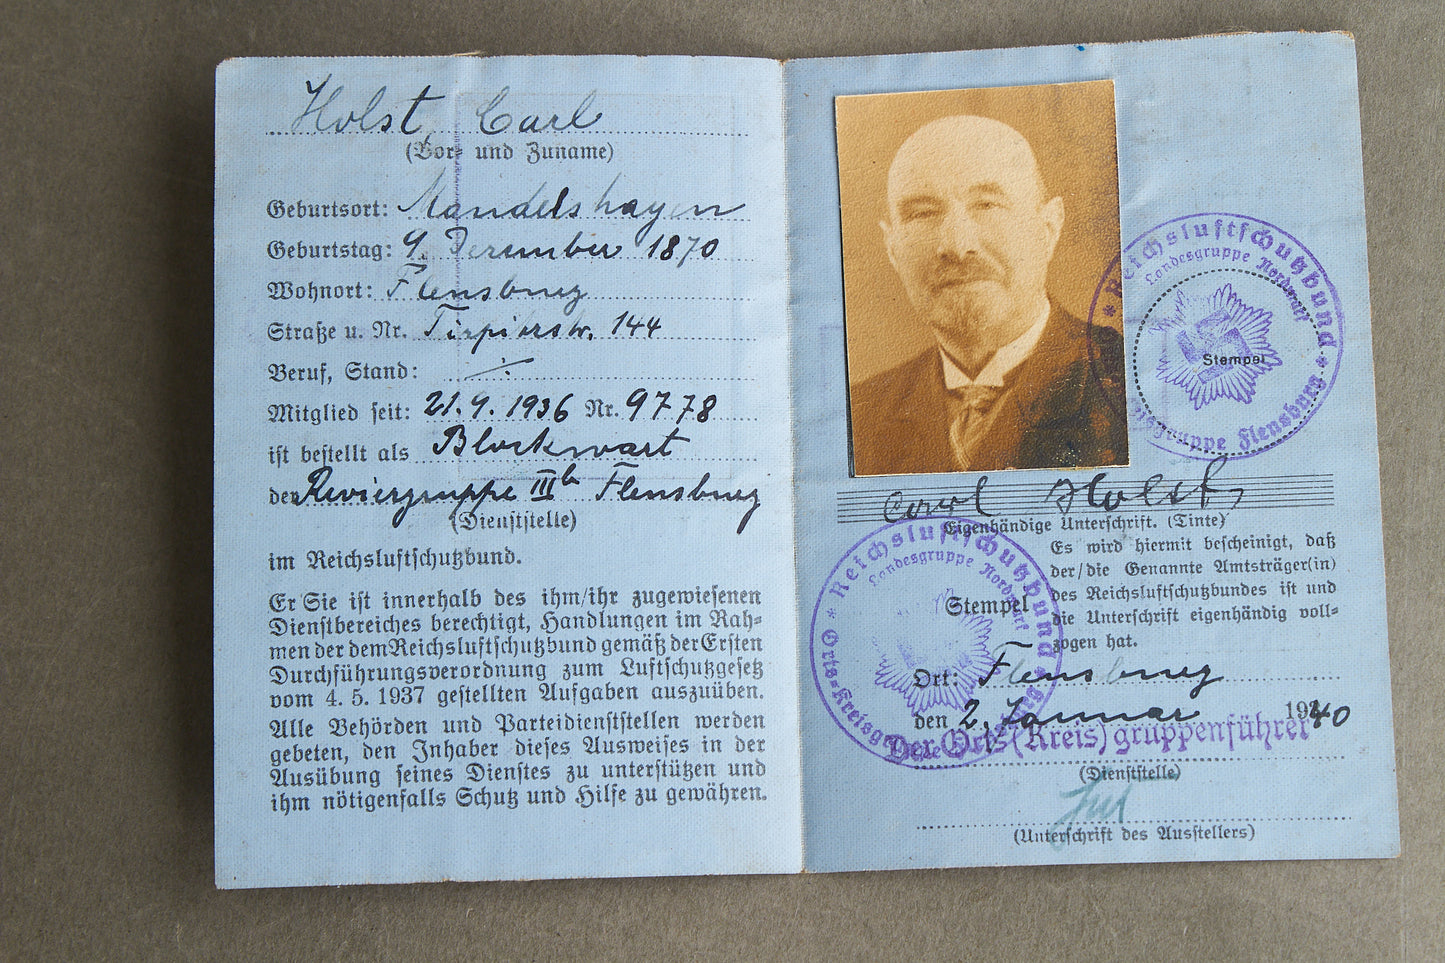 Holst, Carl
(Vor- und Zuname)
Geburtsort: Mandelshagen
Geburtstag: 9. Dezember 1870
Wohnort: Flensburg
Straße u. Nr. Tirpitzstr. 144
Beruf, Stand: ./.
Mitglied seit: 21.9.1936 Nr. 9778
ist bestellt als Blockwart
der Reviergruppe IIIb Flensburg
(Dienststelle)
im Reichsluftschutzbund.
Er/Sie ist innerhalb des ihm/ihr zugewiesenen
Dienstbereiches berechtigt, Handlungen im Rah-
men der dem Reichsluftschutzbund gemäß der Ersten
Durchführungsverordnung zum Luftschutzgesetz
vom 4. 5. 1937 gestellten Aufgaben auszuüben.
Alle Behörden und Parteidienststellen werden
gebeten, den Inhaber dieses Ausweises in der
Ausübung seines Dienstes zu unterstützen und
ihm nötigenfalls Schutz und Hilfe zu gewähren.
* Reichsluftschutzbund *
Landesgruppe Nordmark
Stempel
Kreisgruppe Flensburg
Carl Holst,
Eigenhändige Unterschrift. (Tinte)
Es wird hiermit bescheinigt, daß
der/die Genannte Amtsträger(in)
des Reichsluftschutzbundes ist und
die Unterschrift eigenhändig voll-
zogen hat.
* Reichsluftschutzbund *
Landesgruppe Nordmark
Stempel
Orts-Kreisgruppe
Ort: Flensburg
den 2. Januar 1940
Der Orts(Kreis)gruppenführer
(Dienststelle)
(Unterschrift des Ausstellers)